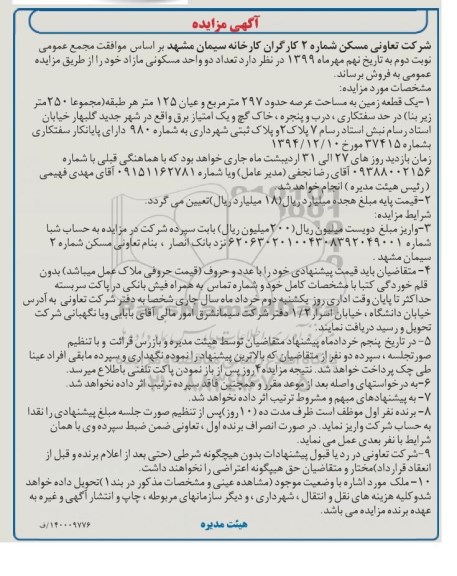 آگهی مزایده
شرکت تعاونی مسکن شماره ۲ کارگران کارخانه سیمان مشهد بر اساس موافقت مجمع عمومی
نوبت دوم به تاریخ نهم مهرماه ۱۳۹۹ در نظر دارد تعداد دو واحد مسکونی مازاد خود را از طریق مزایده
عمومی به فروش برساند.
مشخصات مورد مزایده:
۱-یک قطعه زمین به مساحت عرصه حدود ۲۹۷ مترمربع و عیان ۱۲۵ متر هر طبقه(مجموعا ۲۵۰متر
زیر بنا) در حد سفتکاری ، درب و پنجره ، خاک گچ و یک امتیاز برق واقع در شهر جدید گلبهار خیابان
استاد رسام نبش استاد رسام ۷ پلاک۲و پلاک ثبتی شهرداری به شماره ۹۸۰ دارای پایانکار سفتکاری
بشماره ۳۷۴۱۵ مورخ ۱۳۹۴/۱۲/۱۰
زمان بازدید روز های ۲۷ الی ۳۱ اردیبشت ماه جاری خواهد بود که با هماهنگی قبلی با شماره
۰۹۳۸۸۰۰۲۱۵۶ آقای رضا نجفی (مدیر عامل) ویا شماره ۰۹۱۵۱۱۶۲۷۸۱ آقای مهدی فهیمی
( رئیس هیئت مدیره ) انجام خواهد شد
۲-قیمت پایه مبلغ هجده میلیارد ریال(۱۸ میلیارد ریال)تعیین می گردد.
شرایط مزایده:
۳-واریز مبلغ دویست میلیون ریال(۲۰۰میلیون ریال) بابت سپرده شرکت در مزایده به حساب شبا
شماره ۶۲۰۶۳۰۲۰۱۰۰۴۳۰۸۳۹۲۰۴۹۰۰۱ نزد بانک انصار ، بنام تعاونی مسکن شماره ۲
سیمان مشهد .
۴- متقاضیان باید قیمت پیشنهادی خود را با عدد و حروف (قیمت حروفی ملاک عمل میباشد) بدون
قلم خوردگی کتبا با مشخصات کامل خود و شماره تماس به همراه فیش بانکی در پاکت سربسته
حداکثر تا پایان وقت اداری روز یکشنبه دوم خرداد ماه سال جاری شخصا به دفتر شرکت تعاونی به آدرس
خیابان دانشگاه ، خیابان اسرار ۱/۲ دفتر شرکت سیمانشرق امور مالی آقای بابایی ویا نگهبانی شرکت
تحویل و رسید دریافت نمایند:
۵- در تاریخ پنجم خردادماه پیشنهاد متقاضیان توسط هیئت مدیره و بازرس قرائت و با تنظیم
صورتجلسه ، سپرده دو نفر از متقاضیان که بالاترین پیشنهاد را نموده نگهداری و سپرده مابقی افراد عینا
طی چک پرداخت خواهد شد. نتیجه مزایده۴روز پس از باز نمودن پاکت تلفنی باطلاع میرسد.
۶-به درخواستهای واصله بعد از موعد مقرر و همچنین فاقد سپرده ترتیب اثر داده نخواهد شد.
۷- به پیشنهادهای مبهم و مشروط ترتیب اثر داده نخواهد شد.
۸- برنده نفر اول موظف است ظرف مدت ده (۱۰روز)پس از تنظیم صورت جلسه مبلغ پیشنهادی را نقدا
به حساب شرکت واریز نماید. در صورت انصراف برنده اول ، تعاونی ضمن ضبط سپرده وی با همان
شرایط با نفر بعدی عمل می نماید.
۹-شرکت تعاونی در رد یا قبول پیشنهادات بدون هیچگونه شرطی (حتی بعد از اعلام برنده و قبل از
انعقاد قرارداد)مختار و متقاضیان حق هیچگونه اعتراضی را نخواهند داشت.
۱۰- ملک مورد اشاره با وضعیت موجود (مشاهده عینی و مشخصات مذکور در بند۱)تحویل داده خواهد
شدو کلیه هزینه های نقل و انتقال ، شهرداری ، و دیگر سازمانهای مربوطه ، چاپ و انتشار آگهی و غیره به
عهده برنده مزایده می باشد.
هیئت مدیره
۱۴۰۰۰۹۷۷۶/ف